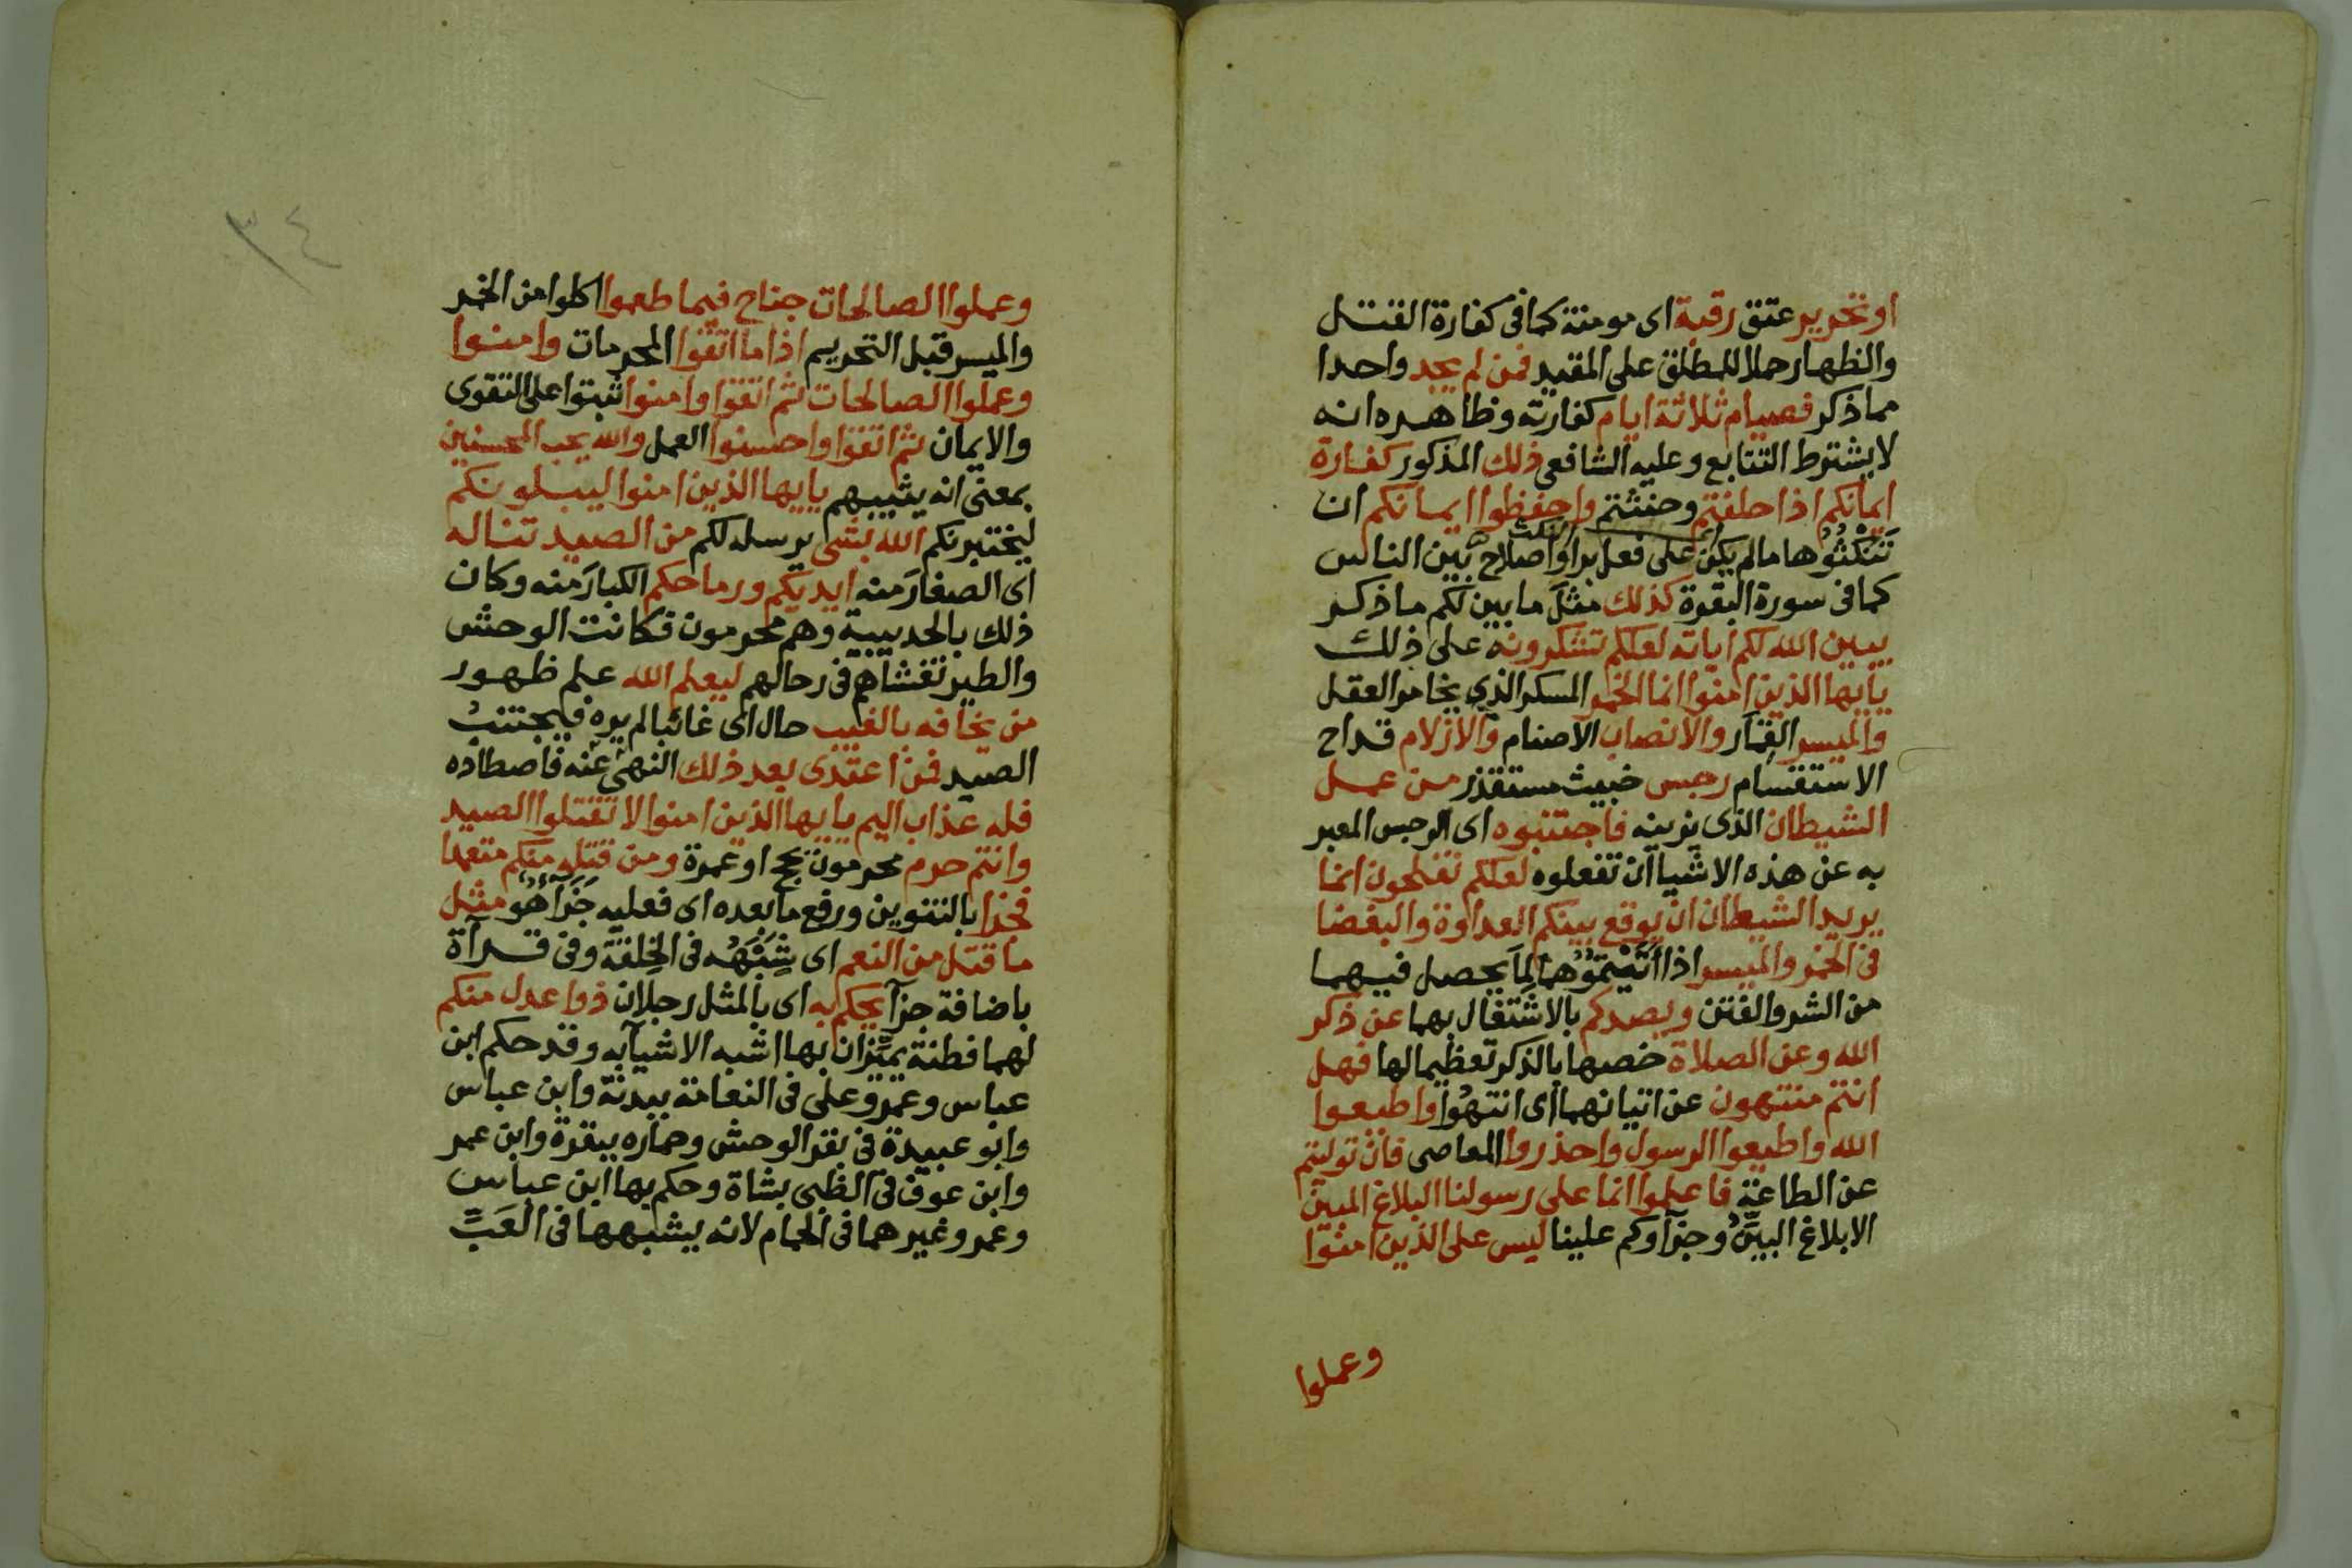 او تحرير عتق رقبة اى مومنة كما فى كفارة القتل
والظهار حملا للمطلق على المقيد فمن لم يجد واحدا
مما ذكر فصيام ثلاثة ايام كفارته وظاهره انه
لا يشترط التتابع وعليه الشافعى ذلك المذكور كفارة
ايمانكم اذا حلفتم وحنثتم واحفظوا ايمانكم ان
تَنكُثُوُها مالم يكن على فعل بر او اصلاح بين الناس
كما فى سورة البقرة كذلك مثل ما بين لكم ما ذكر
يبين الله لكم اياته لعلكم تشكرونه على ذلك
يايها الذين امنوا انما الخمر المسكر الذي يخامر العقل
والميسر القِمَار والانصاب الاصنام والازلام قداح
الاستقسام رجس خبيث مستقذر من عمل
الشيطان الذى يزينه فاجتنبوه اى الرجس المعبر
به عن هذه الاشيا ان تفعلوه لعلكم تفلحون انما
يريد الشيطان ان يوقع بينكم العداوة والبغضا
فى الخمر والميسر اذا اتَيْتُمُوُهما لِمَا يحصل فيهما
من الشر والفتن ويصدكم بالاشتغال بهما عن ذكر
الله وعن الصلاة خصها بالذكر تعظيما لها فهل
انتم منتهون عن اتيانهما اى انتهُوا واطيعوا
الله واطيعوا الرسول واحذروا المعاصى فان توليتم
عن الطاعة فاعلموا انما على رسولنا البلاغ المبين
الابلاغ البيِّنُ وجزآوكم علينا ليس على الذين امنوا
وعملوا
٣٤
وعملوا الصالحات جناح فيما طعموا اكلوا من الخمر
والميسر قبل التحريم اذا ما اتقوا المحرمات وامنوا
وعملوا الصالحات ثم اتقوا وامنوا ثبتوا على التقوى
والايمان ثم اتقوا واحسنوا العمل والله يحب المحسنين
بمعنى انه يثيبهم يايها الذين امنوا ليبلونكم
ليختبرنكم الله بشى يرسله لكم من الصيد تناله
اى الصغارَ منه ايديكم ورماحكم الكبارَ منه وكان
ذلك بالحديبية وهم محرمون فكانت الوحش
والطير تغشاهم فى رحالهم ليعلم الله علم ظهور
من يخافه بالغيب حال اى غائبا لم يره فيجتنبُ
الصيد فمن اعتدى بعد ذلك النهى عنه فاصطاده
فله عذاب اليم يايها الذين امنوا لا تقتلوا الصيد
وانتم حرم محرمون بحج او عمرة ومن قتله منكم متعمدا
فجزا بالتنوين ورفع ما بعده اى فعليه جَزَآءٌ هُو مثل
ما قتل من النعم اى شِبْهُه فى الخِلقة وفى قرآة
باضافة جزآ يحكم به اى بالمثل رجلان ذوا عدل منكم
لهما فطنة يميِّزان بها اشبه الاشيآ به وقد حكم ابن
عباس وعمر وعلى فى النعامة ببدنة وابن عباس
وابو عبيدة فى بقر الوحش وحماره ببقرة وابن عمر
وابن عوف فى الظبى بشاة وحكم بها ابن عباس
وعمر وغيرهما فى الحمام لانه يشبهها فى العَبِّ